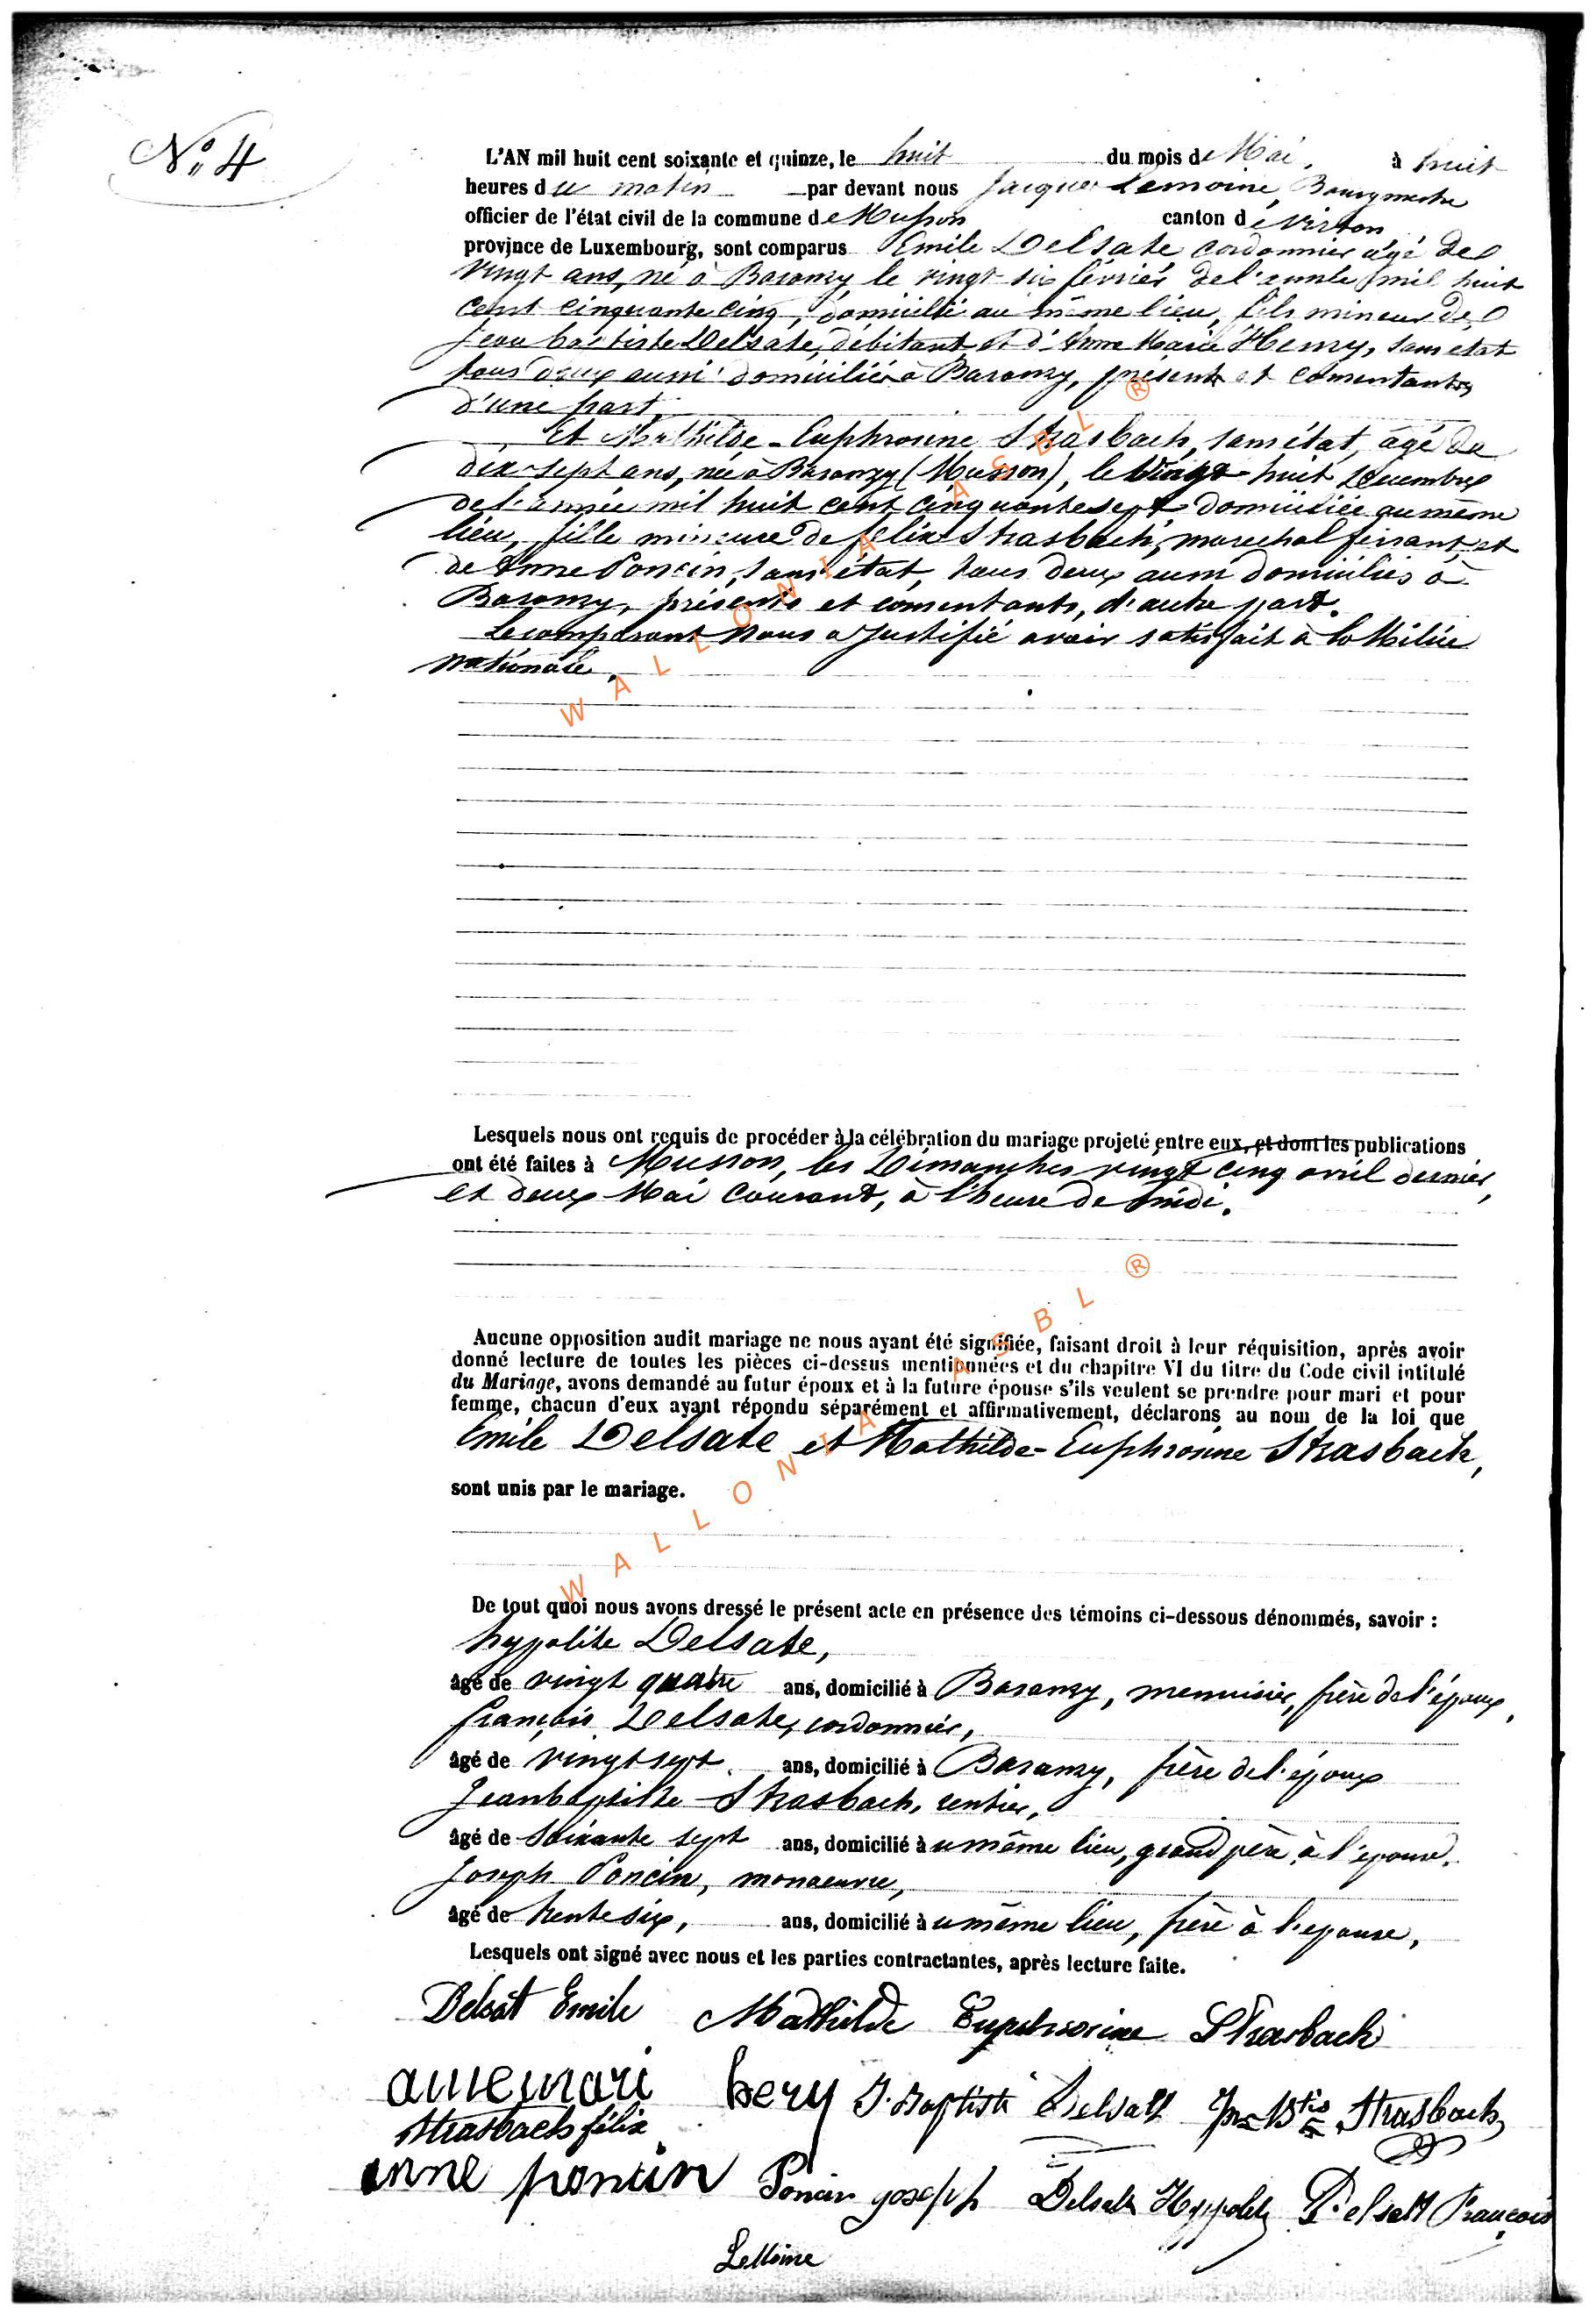 N° 4
L'AN mil huit cent soixante et quinze, le huit du mois de Mai, à huit
heures du matin par devant nous Jacques Lemoine, Bourgmestre
officier de l'état civil de la commune de Musson canton de Virton
province de Luxembourg, sont comparus Emile Delsate cordonnier âgé de
vingt ans, né à Baranzy le vingt six février de l'année mil huit
cent cinquante cinq, domicilié au même lieu, fils mineur de
Jean baptiste Delsate, débitant et d'Anne Marie Henry, sans etat
tous deux aussi domiciliés à Baranzy, présents et consentants
d'une part,
Et Mathilde-Euphrosine Strasbach, sans état, âgé de
dix-sept ans, née à Baranzy (Musson), le vingt-huit Decembre
de l'année mil huit cent cinquante sept domiciliée au même
lieu, fille mineure de félix Strasbach, marechal ferrant, et
de Anne Poncin, sans état, tous deux aussi domiciliés à
Baranzy, présents et consentants, d'autre part.
Le comparant nous a justifié avoir satisfait à la Milice
nationale.
Lesquels nous ont requis de procéder à la célébration du mariage projeté entre eux, et dont les publications
ont été faites à Musson, les Dimanches vingt cinq avril dernier,
et deux Mai courant, à l'heure de midi.
Aucune opposition audit mariage ne nous ayant été signifiée, faisant droit à leur réquisition, après avoir
donné lecture de toutes les pièces ci-dessus mentionnées et du chapitre VI du titre du Code civil intitulé
du Mariage, avons demandé au futur époux et à la future épouse s'ils veulent se prendre pour mari et pour
femme, chacun d'eux ayant répondu séparément et affirmativement, déclarons au nom de la loi que
Emile Delsate et Mathilde-Euphrosine Strasbach,
sont unis par le mariage.
De tout quoi nous avons dressé le présent acte en présence des témoins ci-dessous dénommés, savoir :
hypolite Delsate,
âgé de vingt quatre ans, domicilié à Baranzy, menuisier, frère de l'époux,
françois Delsate, cordonnier,
âgé de vingt sept ans, domicilié à Baranzy, frère de l'époux
Jean baptiste Strasbach, rentier,
âgé de soixante sept ans, domicilié au même lieu, grand père à l'épouse.
Joseph Poncin, manoeuvre,
âgé de trente six, ans, domicilié au même lieu, frère à l'epouse,
Lesquels ont signé avec nous et les parties contractantes, après lecture faite.
Delsat Emile Mathilde Euphrosine Strasbach
anne mari hery J. Baptiste Delsatt Jn Btis Strasbach
Strasbach félix
anne poncin Poncin joseph Delsate Hyppolite Delsatt François
LeMoine
WALLONIA ASBL ®
WALLONIA ASBL ®